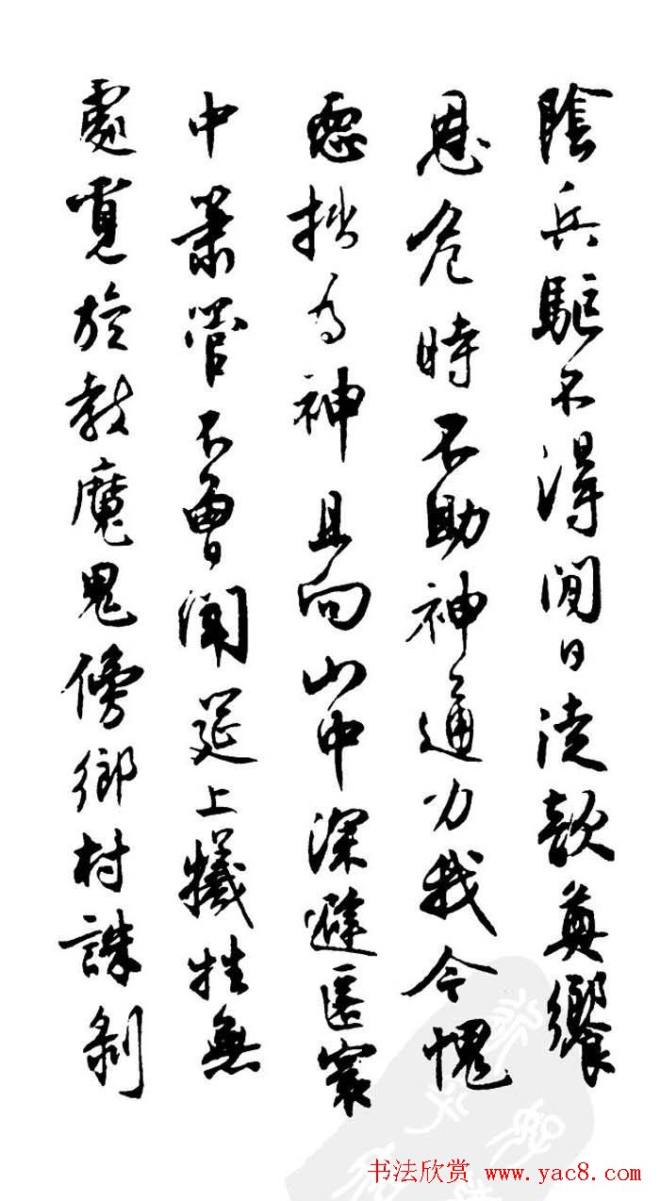 陰兵驅不得閒日徒歆奠饗
恩危時不助神通力我今愧
恧拙為神且向山中深避匿寰
中簫管不曾聞筵上犧牲無
處覓旋教魔鬼傍鄉村誅剝
书法欣赏 www.yac8.com